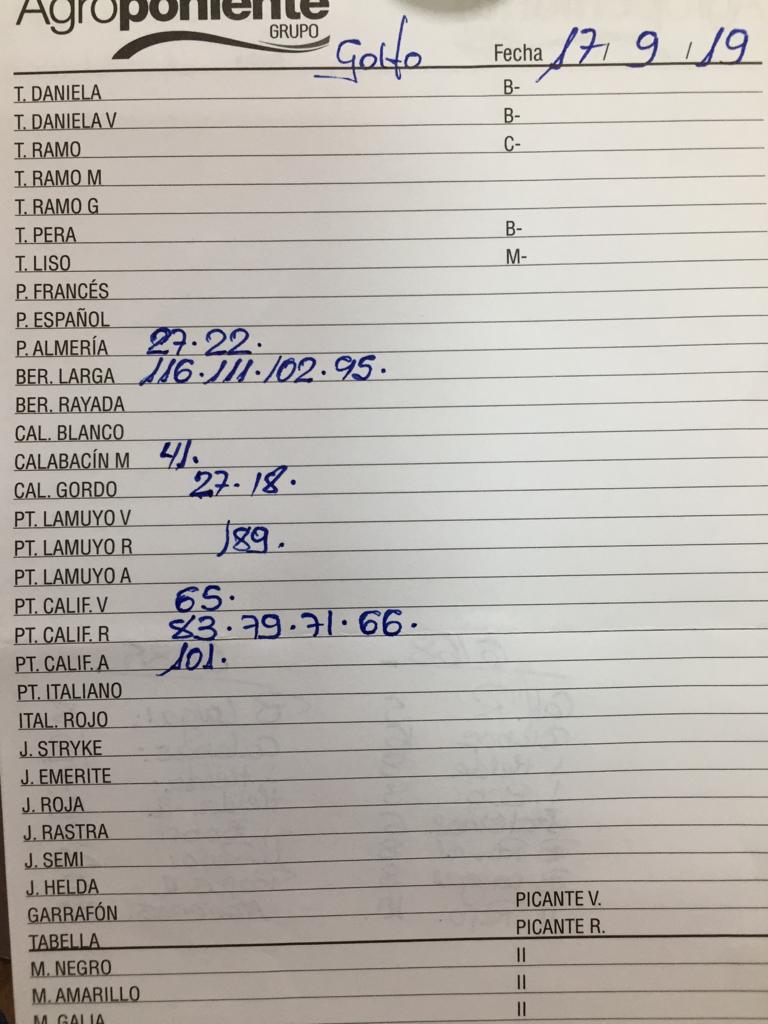 Agroponiente
GRUPO
Golfo Fecha 17/ 9 / 19
T. DANIELA B-
T. DANIELA V B-
T. RAMO C-
T. RAMO M
T. RAMO G
T. PERA B-
T. LISO M-
P. FRANCÉS
P. ESPAÑOL
P. ALMERÍA 27. 22.
BER. LARGA 116. 111. 102. 95.
BER. RAYADA
CAL. BLANCO
CALABACÍN M 41.
CAL. GORDO 27. 18.
PT. LAMUYO V
PT. LAMUYO R 189.
PT. LAMUYO A
PT. CALIF. V 65.
PT. CALIF. R 83. 79. 71. 66.
PT. CALIF. A 101.
PT. ITALIANO
ITAL. ROJO
J. STRYKE
J. EMERITE
J. ROJA
J. RASTRA
J. SEMI
J. HELDA
GARRAFÓN PICANTE V.
TABELLA PICANTE R.
M. NEGRO II
M. AMARILLO II
M. GALIA II